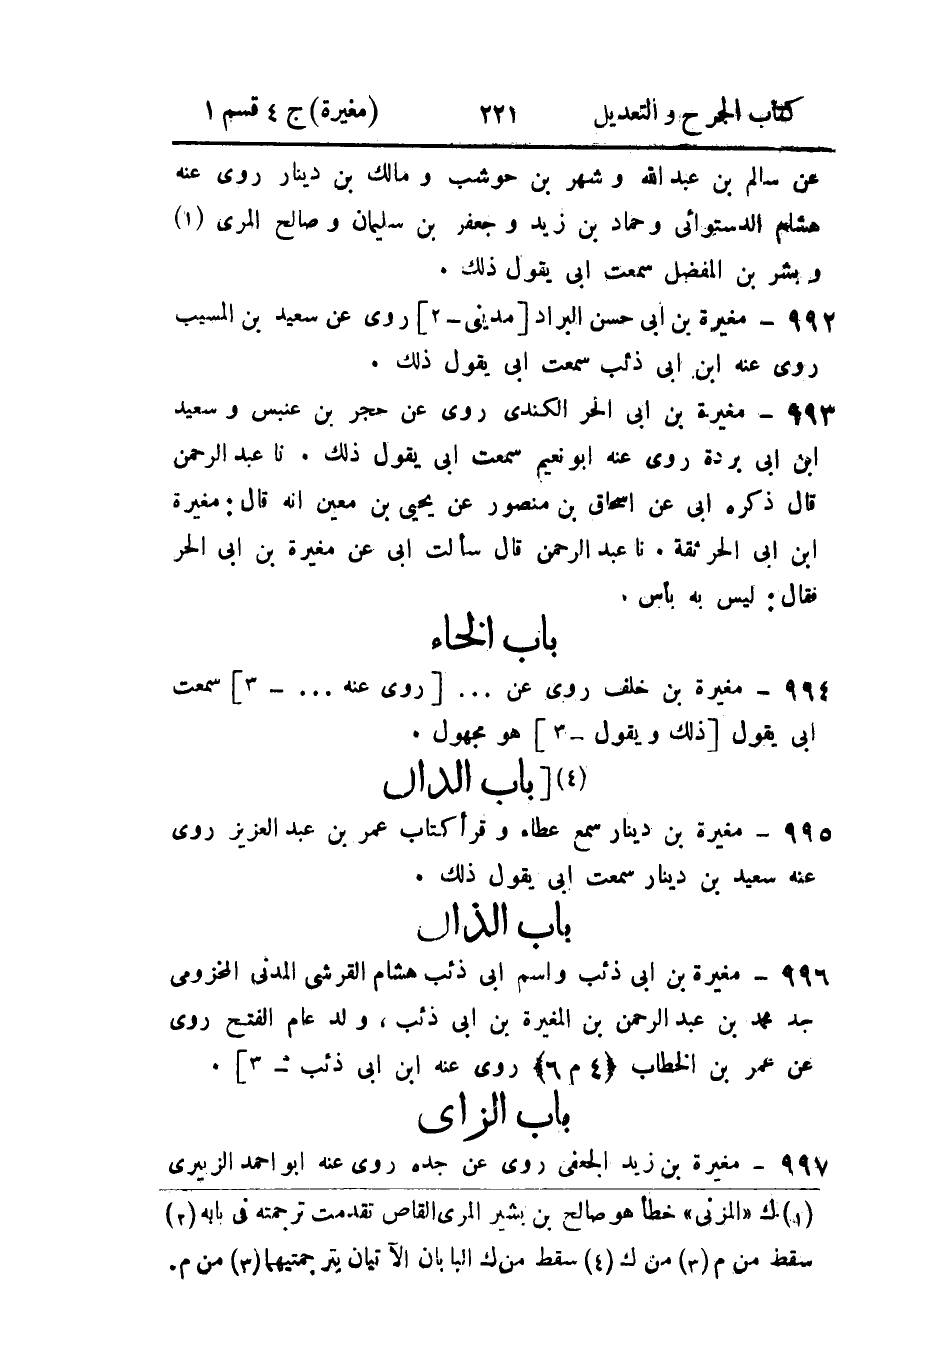 كتاب الجرح والتعديل ٢٢١ (مغيرة) ج ٤ قسم ١
عن سالم بن عبد الله و شهر بن حوشب و مالك بن دينار روى عنه
هشام الدستوائى وحماد بن زيد و جعفر بن سليمان و صالح المرى (١)
و بشر بن المفضل سمعت ابى يقول ذلك .
٩٩٢ – مغيرة بن ابى حسن البراد [مدينى – ٢] روى عن سعيد بن المسيب
روى عنه ابن ابى ذئب سمعت ابى يقول ذلك .
٩٩٣ – مغيرة بن ابى الحر الكندى روى عن حجر بن عنبس و سعيد
ابن ابى بردة روى عنه ابو نعيم سمعت ابى يقول ذلك . نا عبد الرحمن
قال ذكره ابى عن اسحاق بن منصور عن يحيى بن معين انه قال : مغيرة
ابن ابى الحر ثقة . نا عبد الرحمن قال سألت ابى عن مغيرة بن ابى الحر
فقال : ليس به بأس .
باب الخاء
٩٩٤ – مغيرة بن خلف روى عن ... [روى عنه ... – ٣] سمعت
ابى يقول [ذلك ويقول – ٣] هو مجهول .
(٤) [باب الدال
٩٩٥ – مغيرة بن دينار سمع عطاء و قرأ كتاب عمر بن عبد العزيز روى
عنه سعيد بن دينار سمعت ابى يقول ذلك .
باب الذال
٩٩٦ – مغيرة بن ابى ذئب واسم ابى ذئب هشام القرشى المدنى المخزومى
جد محمد بن عبد الرحمن بن المغيرة بن ابى ذئب ، ولد عام الفتح روى
عن عمر بن الخطاب ﴿٤ م ٦﴾ روى عنه ابن ابى ذئب – ٣] .
باب الزاى
٩٩٧ – مغيرة بن زيد الجعفى روى عن جده روى عنه ابو احمد الزبيرى
(١) ك «المزنى» خطأ هو صالح بن بشير المرى القاص تقدمت ترجمته فى بابه (٢)
سقط من م (٣) من ك (٤) سقط من ك البابان الآتيان بترجمتيهما (٣) من م.